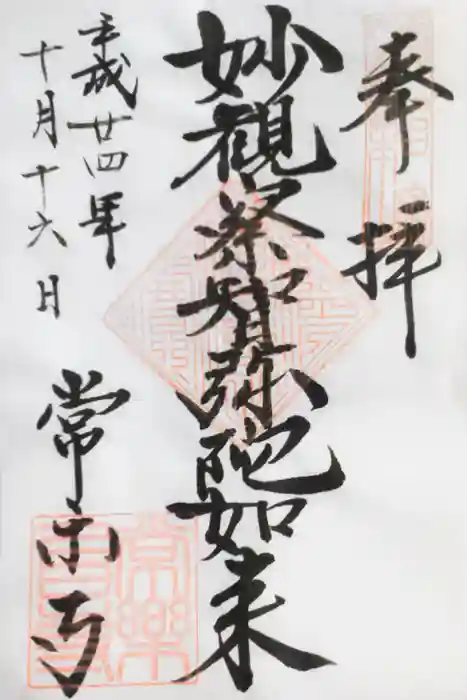 奉拝
妙觀察智弥陀如来
平成廿四年
十月十六日
常楽寺